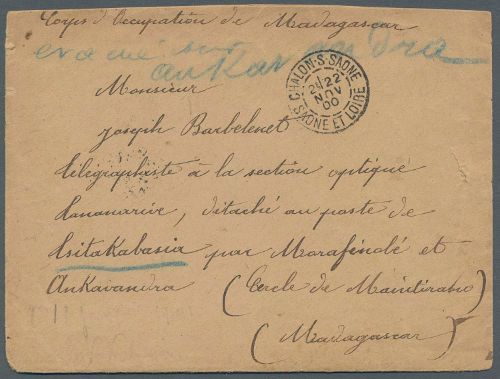 Corps d'Occupation de Madagascar
evacué sur
Ankavandra
Monsieur
CHALON-S-SAONE
2E 22
NOV
00
SAONE ET LOIRE
Joseph Barbelenet
télégraphiste à la section optique
Tananarive, détaché au poste de
Tsitakabasia par Morafénobé et
Ankavandra (Cercle de Maintirano)
(Madagascar)